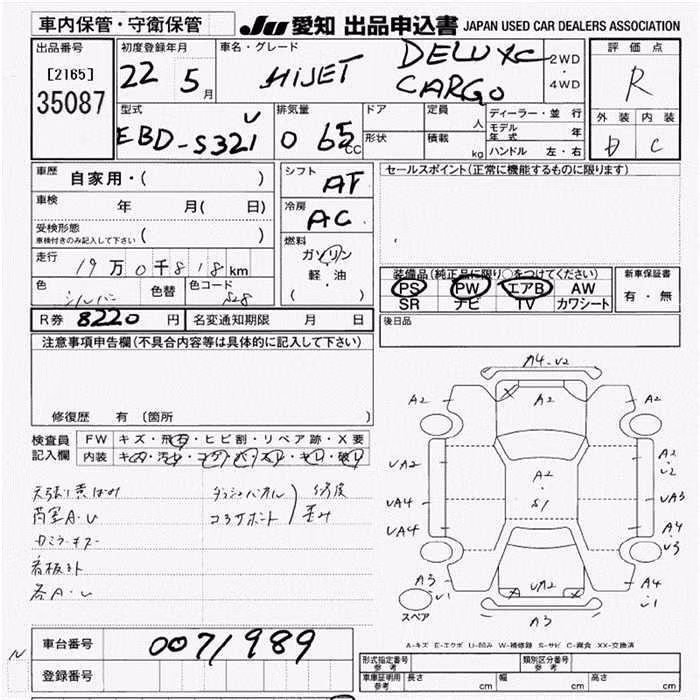 車内保管・守衛保管
JU 愛知 出品申込書 JAPAN USED CAR DEALERS ASSOCIATION
出品番号
[2165]
35087
初度登録年月
22 5月
車名・グレード
HIJET
DELUXE
CARGO
2WD
・
4WD
評価点
R
外装 内装
D C
型式
EBD-S321V
排気量
0 65 CC
ドア
形状
定員 人
積載 kg
ディーラー・並行
モデル年式 年
ハンドル 左・右
車歴 自家用・( )
車検 年 月( 日)
受検形態
車検付きのみ記入して下さい ( )
走行 19万0千818km
色 シルバー 色替 色コード S28
シフト AT
冷房 AC
燃料
ガソリン
軽・油
( )
セールスポイント(正常に機能するものに限ります)
装備品(純正品に限り○をつけてください)
PS PW エアB AW
SR ナビ TV カワシート
新車保証書
有・無
R券 8220円 名変通知期限 月 日
後日品
注意事項申告欄(不具合内容等は具体的に記入して下さい)
修復歴 有(箇所 )
検査員
記入欄
FW キズ・飛石・ヒビ割・リペア跡・X要
内装
天張り黄ばみ
荷室A・U
看板跡
各A・U
A4-U2
A2 A2 A2
UA2 A2 A2
U2
UA4 S1 A4
UA4 A4
U3
A3 UA2 A4
U1 U1
A3
スペア
A-キズ E-エクボ U-凹み W-補修跡 S-サビ C-腐食 XX-交換済
車台番号 0071989
登録番号
N
形式指定番号
参考
類別区分番号
参考
車庫証明
参考
長さ cm 幅 cm 高さ cm